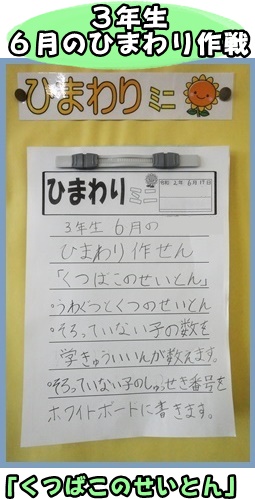 3年生
6月のひまわり作戦
ひまわりミニ
ひまわりミニ
3年生 6月の
ひまわり作せん
「くつばこのせいとん」
・うわぐつとくつのせいとん
・そろっていない子の数を
学きゅういいんが数えます。
・そろっていない子のしゅっせき番号を
ホワイトボードに書きます。
「くつばこのせいとん」